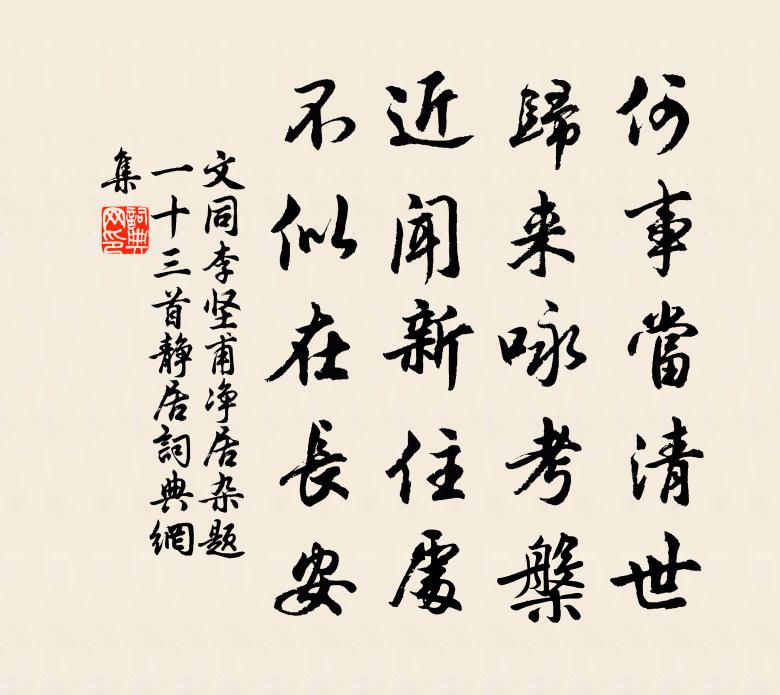 何事當清世
歸来咏考槃
近聞新住處
不似在長安
文同李坚甫净居杂题
一十三首静居詞典網
集
詞典网印